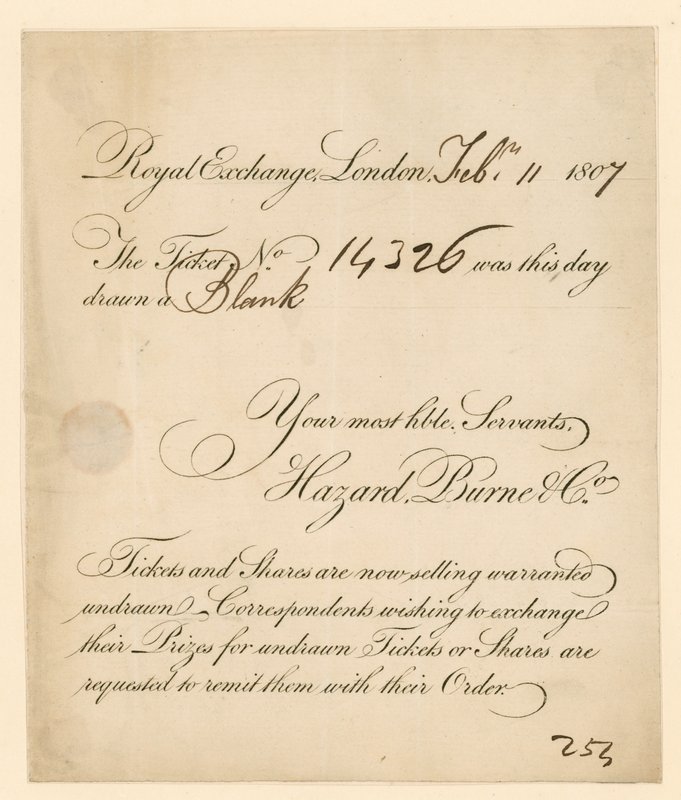 Royal Exchange, London, Febry. 11 1807
The Ticket, No. 14326 was this day
drawn a Blank
Your most hble. Servants,
Hazard, Burne & Co.
Tickets and Shares are now selling warranted
undrawn – Correspondents wishing to exchange
their Prizes for undrawn Tickets or Shares are
requested to remit them with their Order.